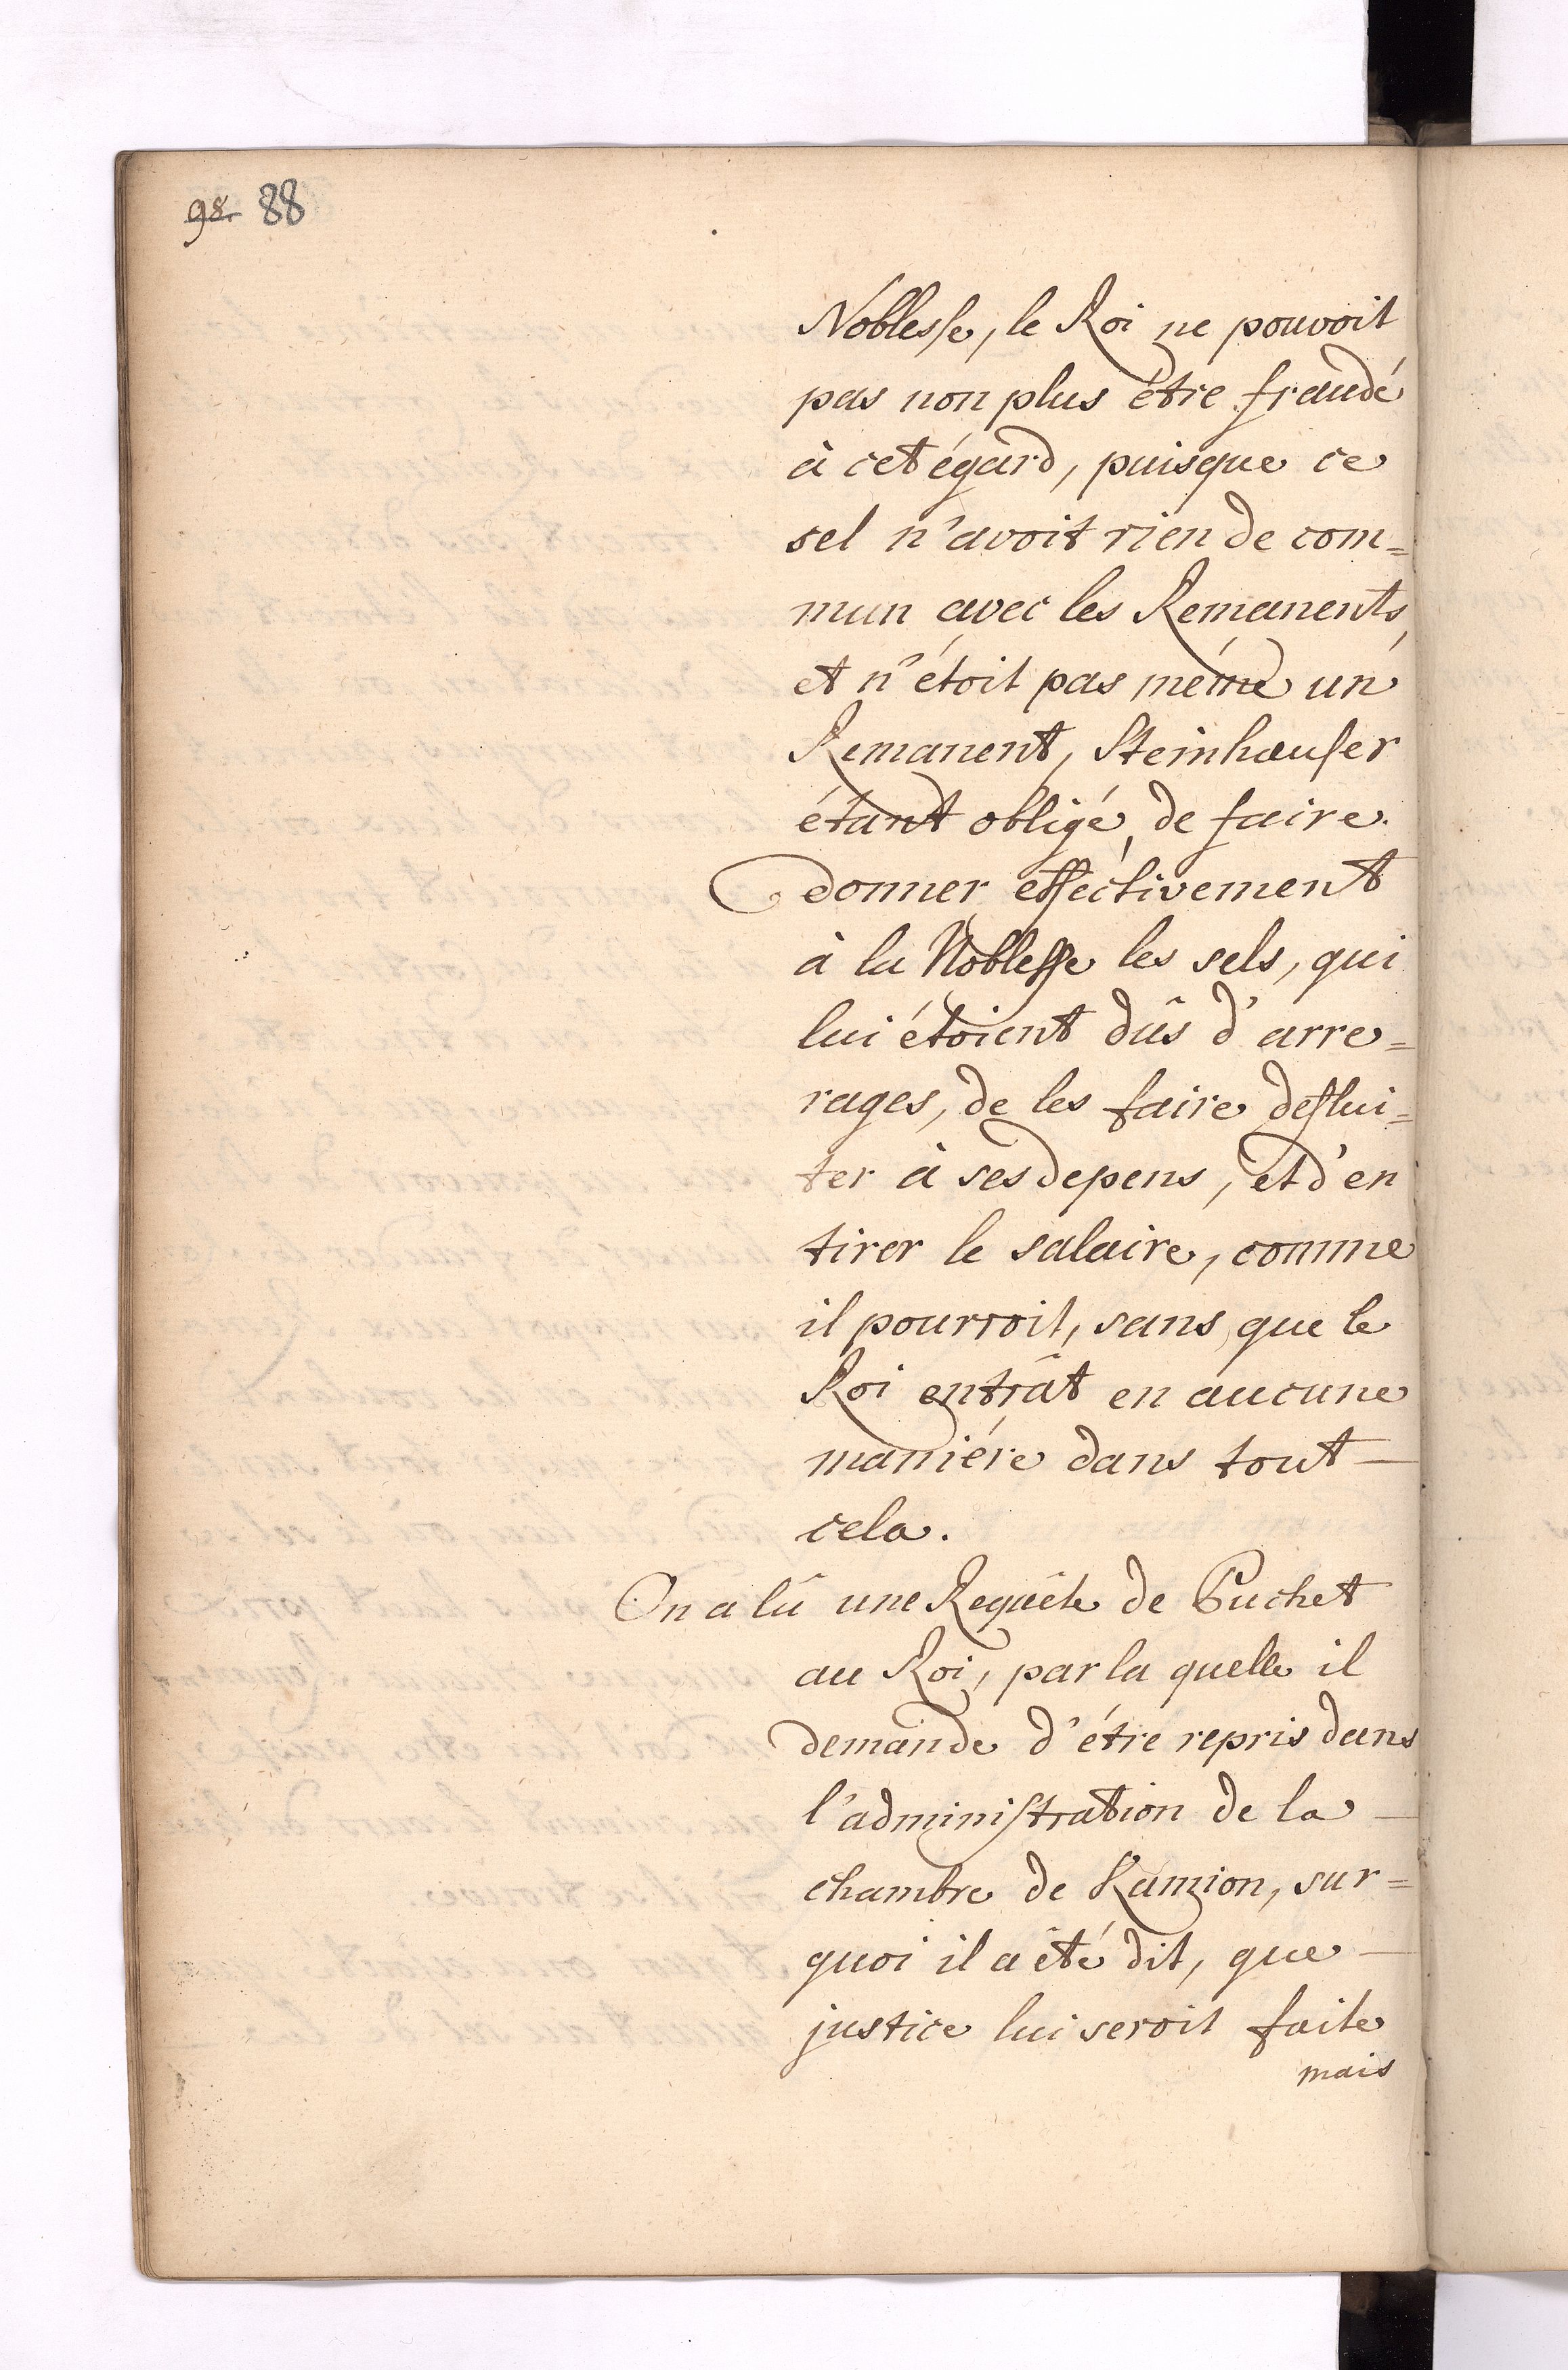 98. 88
Noblesse, le Roi ne pouvoit
pas non plus étre fraudé
à cet égard, puisque ce
sel n'avoit rien de com=
mun avec les Remanents,
et n'étoit pas méme un
Remanent, Steinhauser
étant obligé, de faire
donner efféctivement
à la Noblesse les sels, qui
lui étoient dûs d'arre=
rages, de les faire deflui=
ter à ses depens, et d'en
tirer le salaire, comme
il pourroit, sans que le
Roi entrât en aucune
maniére dans tout
cela.
On a lû une Requête de Puchet
au Roi, par la quelle il
demande d'étre repris dans
l'administration de la
chambre de Ramzion, sur=
quoi il a été dit, que
justice lui seroit faite
mais